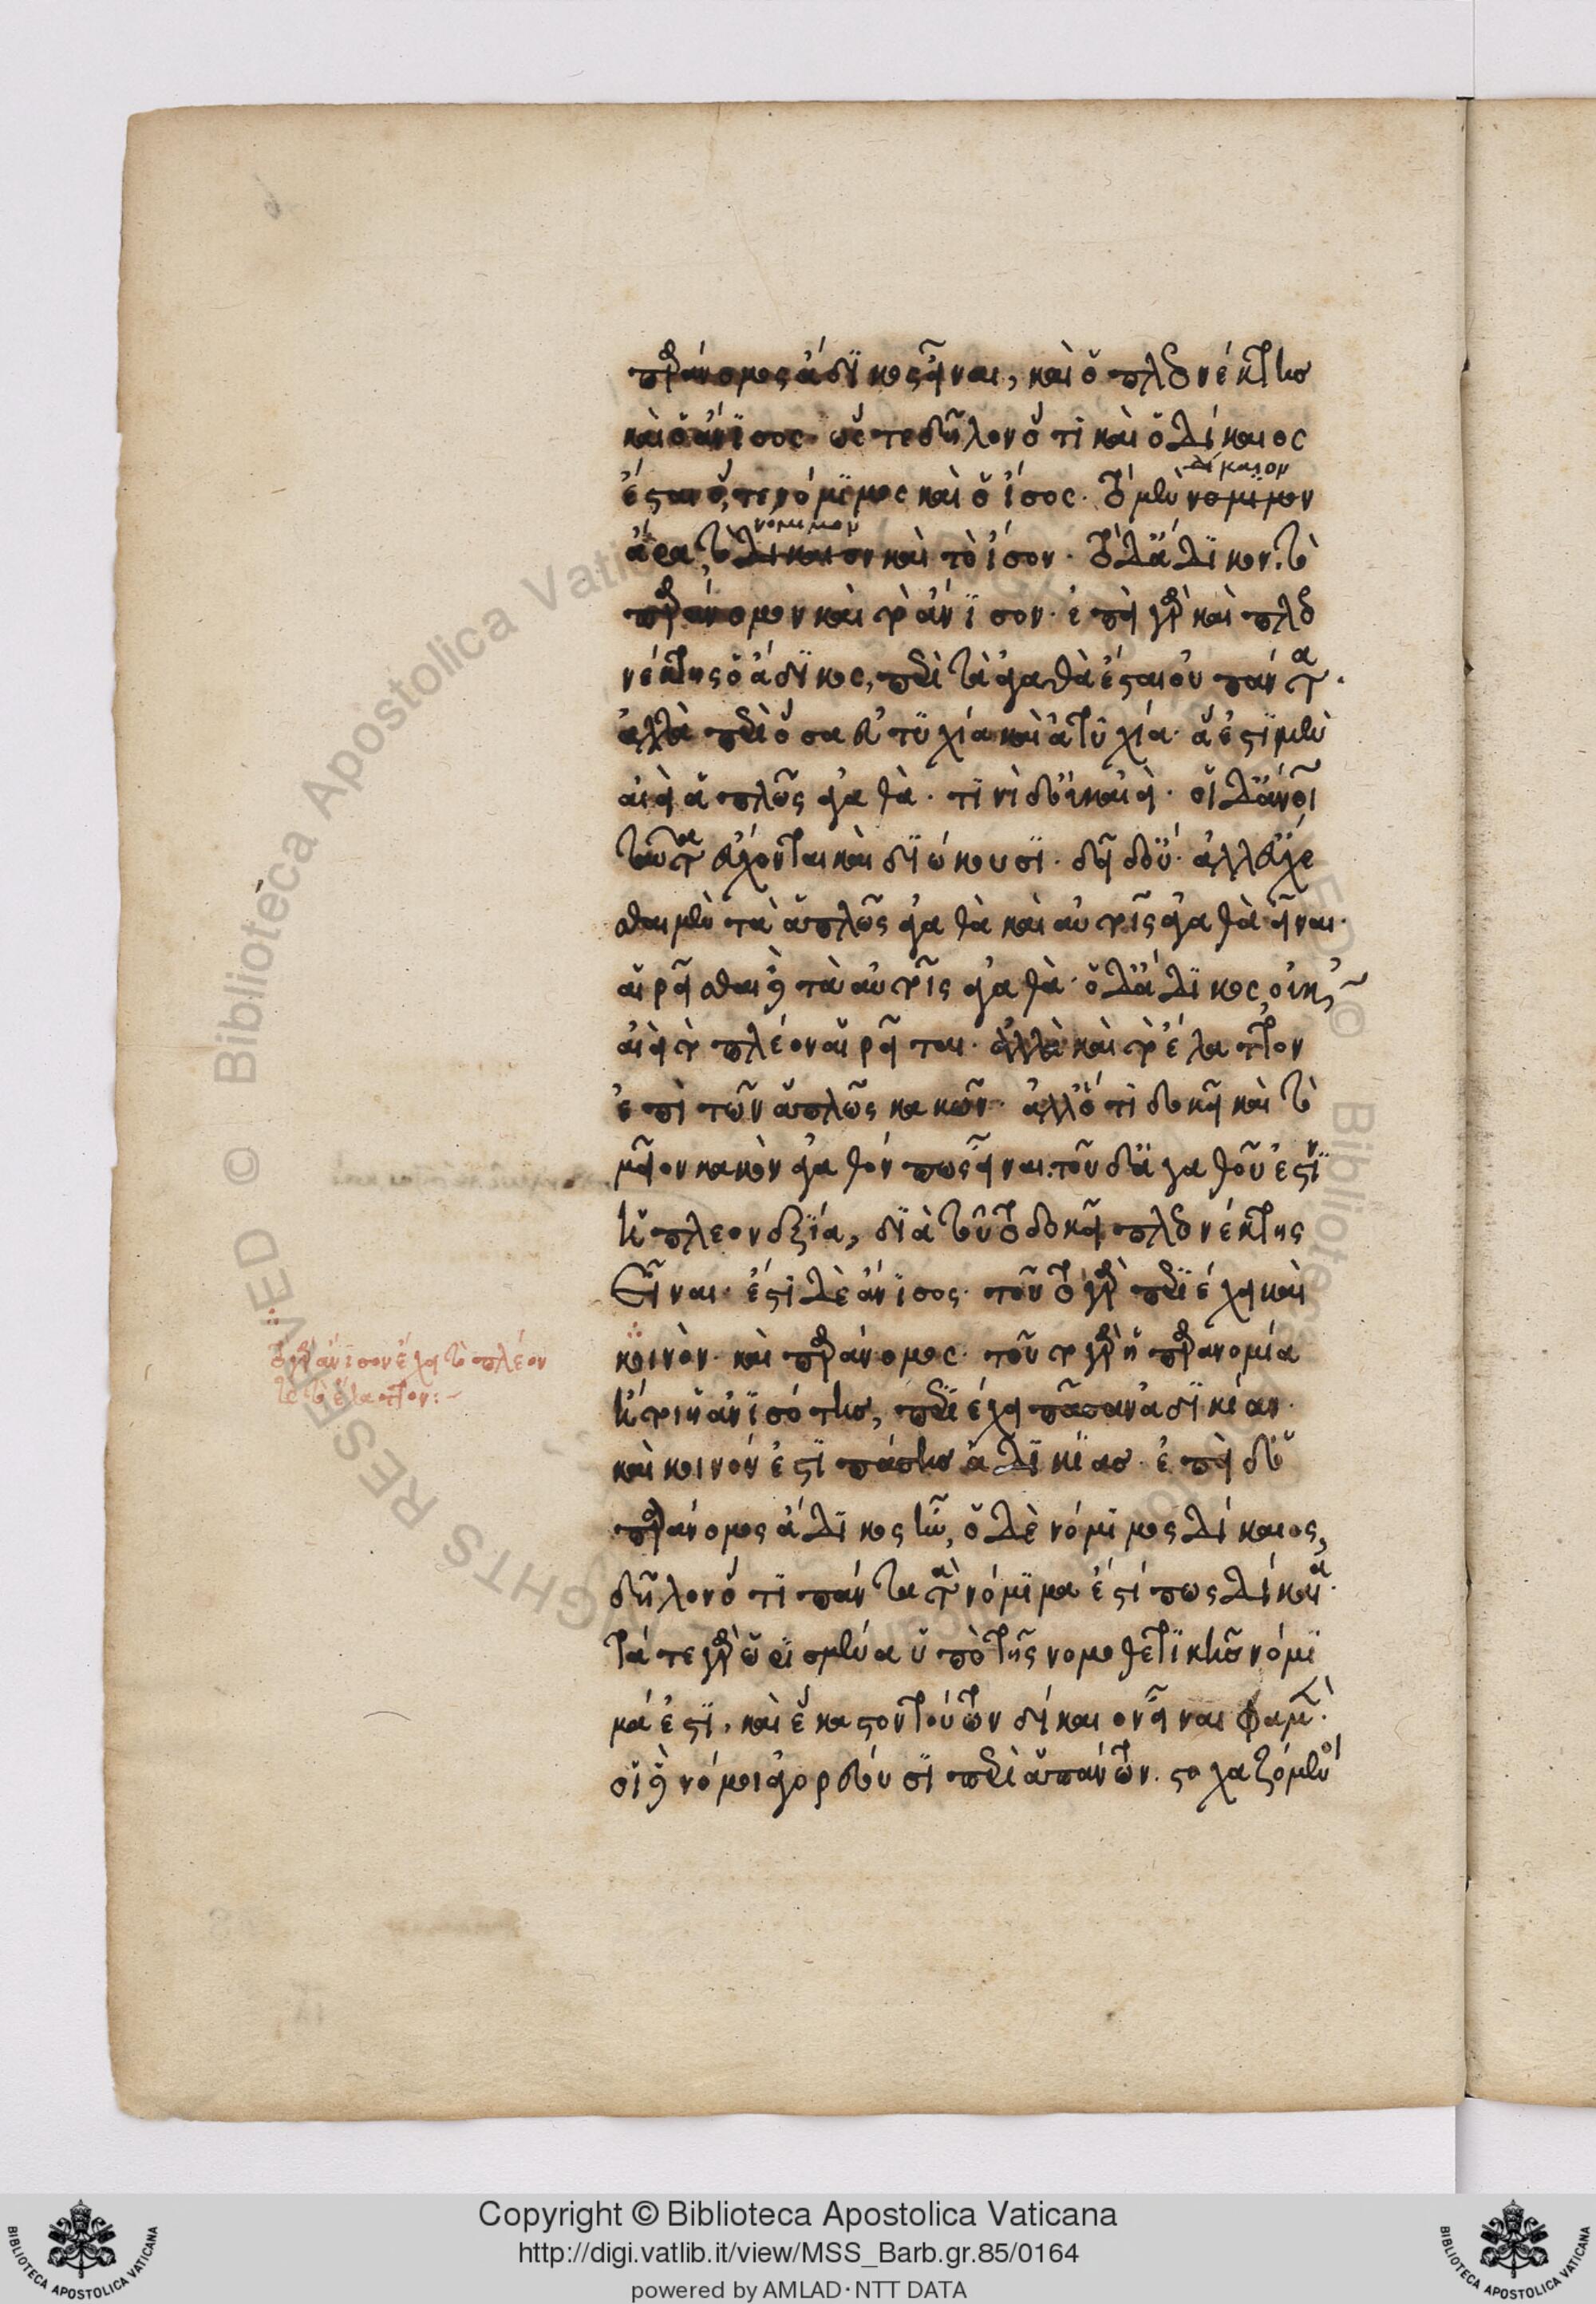 παράνομος ἄδικος εἶναι, καὶ ὁ πλεονέκτης
καὶ ὁ ἄνισος· ὥστε δῆλον ὅτι καὶ ὁ δίκαιος
ἔσται ὅ, τε νόμιμος καὶ ὁ ἴσος. τὸ μὲν νομιμον
δίκαιον
ἄρα, τὸ δίκαιον καὶ τὸ ἴσον· τὸ δ' ἄδικον. τὸ
νόμιμον
παράνομον καὶ τὸ ἄνισον· ἐπεὶ γὰρ καὶ πλεο
νέκτης ὁ ἄδικος, περὶ τἀγαθὰ ἔσται οὐ πάντα·
ἀλλὰ περὶ ὅσα εὐτυχία καὶ ἀτυχία· ἅ ἐστι μὲν
αἰεὶ ἁπλῶς ἀγαθὰ· τινὶ δ' οὐκ αἰεὶ· οἱ δ' ἄνθρωποι
ταῦτα εὔχονται καὶ διώκουσι· δεῖ δ' οὔ· ἀλλ' εὔχε
σθαι μὲν τὰ ἁπλῶς ἀγαθὰ καὶ αὐτοῖς ἀγαθὰ εἶναι·
αἱρεῖσθαι δὲ τὰ αὐτοῖς ἀγαθὰ· ὁ δ' ἄδικος, οὐκ
αἰεὶ τὸ πλέον αἱρεῖται· ἀλλὰ καὶ τὸ ἔλαττον
ἐπὶ τῶν ἁπλῶς κακῶν· ἀλλ' ὅτι δοκεῖ καὶ τὸ
μεῖον κακὸν ἀγαθόν πως εἶναι. τοῦ δ' ἀγαθοῦ ἐστὶν
ἡ πλεονεξία, διὰ τοῦτο δοκεῖ πλεονέκτης
εἶναι· ἔστι δὲ ἄνισος· τοῦτο γὰρ περιέχει καὶ
κοινὸν· καὶ παράνομος· τοῦτο γὰρ ἡ παρανομία
ἤτοι ἡ ἀνισότης, περιέχει πᾶσαν ἀδικίαν·
καὶ κοινόν ἐστι πάσης ἀδικίας· ἐπεὶ δ' ὁ
παράνομος ἄδικος ἦν, ὁ δὲ νόμιμος δίκαιος,
δῆλον ὅτι πάντα τὰ νόμιμα ἐστί πως δίκαια·
τά τε γὰρ ὡρισμένα ὑπὸ τῆς νομοθετικῆς νόμι
μά ἐστι, καὶ ἕκαστον τούτων δίκαιον εἶναι φαμὲν·
οἱ δὲ νόμοι ἀγορεύουσι περὶ ἁπάντων. στοχαζόμενοι
τὸ γὰρ ἄνισον ἔχει τὸ πλέον
καὶ τὸ ἔλαττον:
Copyright © Biblioteca Apostolica Vaticana
http://digi.vatlib.it/view/MSS_Barb.gr.85/0164
powered by AMLAD·NTT DATA